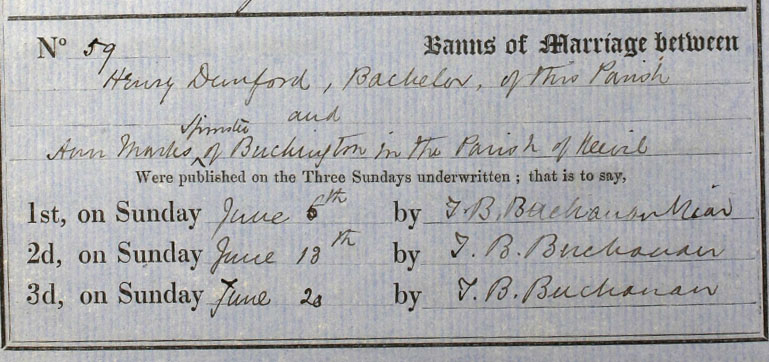 No 59 Banns of Marriage between
Henry Dunford, Bachelor, of this Parish
and
Spinster
Ann Marks ^ of Buckington in the Parish of Keevil
Were published on the Three Sundays underwritten ; that is to say,
1st, on Sunday June 6th by T. B. Buchanan Vicar
2d, on Sunday June 13th by T. B. Buchanan
3d, on Sunday June 20 by T. B. Buchanan